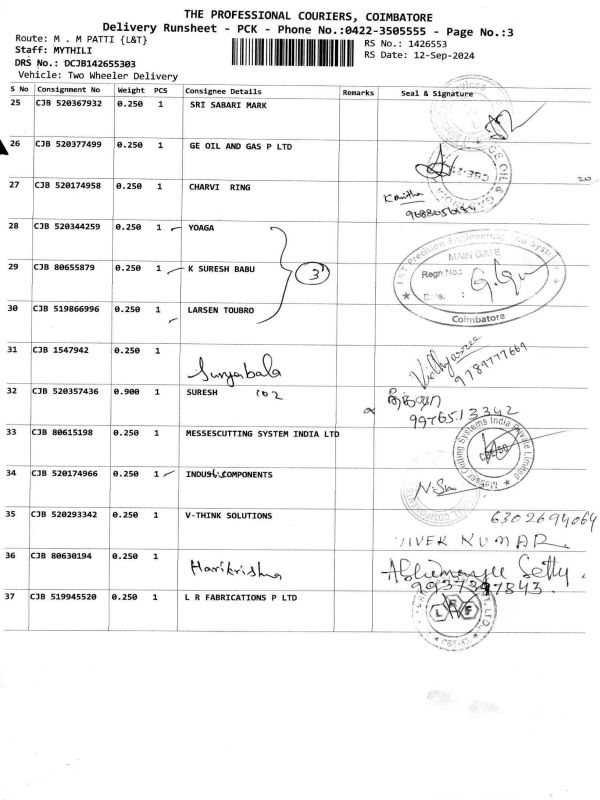 THE PROFESSIONAL COURIERS, COIMBATORE
Delivery Runsheet - PCK - Phone No.:0422-3505555 - Page No.:3
Route: M . M PATTI {L&T}
RS No.: 1426553
Staff: MYTHILI
RS Date: 12-Sep-2024
DRS No.: DCJB142655303
Vehicle: Two Wheeler Delivery
S No Consignment No Weight PCS Consignee Details Remarks Seal & Signature
25 CJB 520367932 0.250 1 SRI SABARI MARK
26 CJB 520377499 0.250 1 GE OIL AND GAS P LTD
GE OIL & GAS
27 CJB 520174958 0.250 1 CHARVI RING
20
Kavitha
28 CJB 520344259 0.250 1 YOAGA
L&T Precision Engineering
MAIN GATE
29 CJB 80655879 0.250 1 K SURESH BABU 3
Regn No.:
Date :
30 CJB 519866996 0.250 1 LARSEN TOUBRO
Coimbatore
31 CJB 1547942 0.250 1
Suryabala
9789777669
32 CJB 520357436 0.900 1 SURESH 102
9976513342
33 CJB 80615198 0.250 1 MESSESCUTTING SYSTEM INDIA LTD
Messer Cutting Systems India Private Limited
34 CJB 520174966 0.250 1 INDUS COMPONENTS
35 CJB 520293342 0.250 1 V-THINK SOLUTIONS 6302694064
VIVEK KUMAR
36 CJB 80630194 0.250 1
Harikrishna
9937397843
37 CJB 519945520 0.250 1 L R FABRICATIONS P LTD
L R F